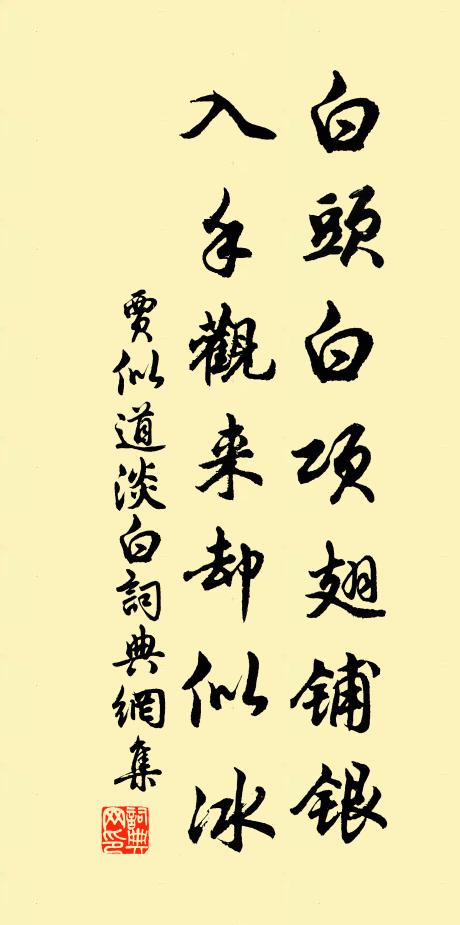 白頭白项翅铺银
入手觀来却似冰
賈似道淡白詞典網集
詞典網印